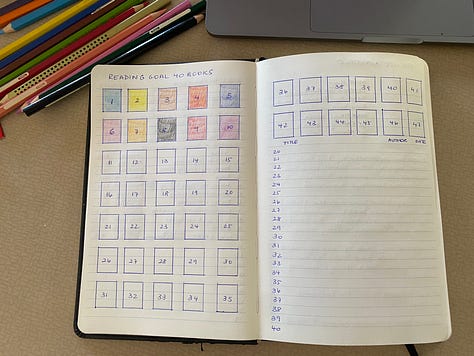 READING GOAL 40 BOOKS
1 2 3 4 5
6 7 8 9 10
11 12 13 14 15
16 17 18 19 20
21 22 23 24 25
26 27 28 29 30
31 32 33 34 35
36 37 38 39 40 41
42 43 44 45 46 47
TITLE AUTHOR DATE
20
21
22
23
24
25
26
27
28
29
30
31
32
33
34
35
36
37
38
39
40